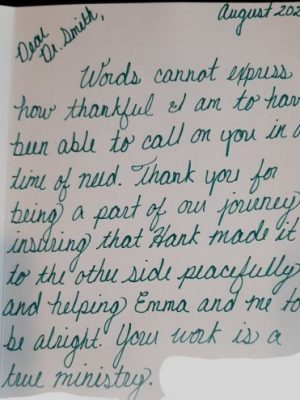 August 202
Dear
Dr. Smith,
Words cannot express
how thankful I am to hav
been able to call on you in a
time of need. Thank you for
being a part of our journey
insuring that Hank made it
to the other side peacefully
and helping Emma and me to
be alright. Your work is a
true ministry.